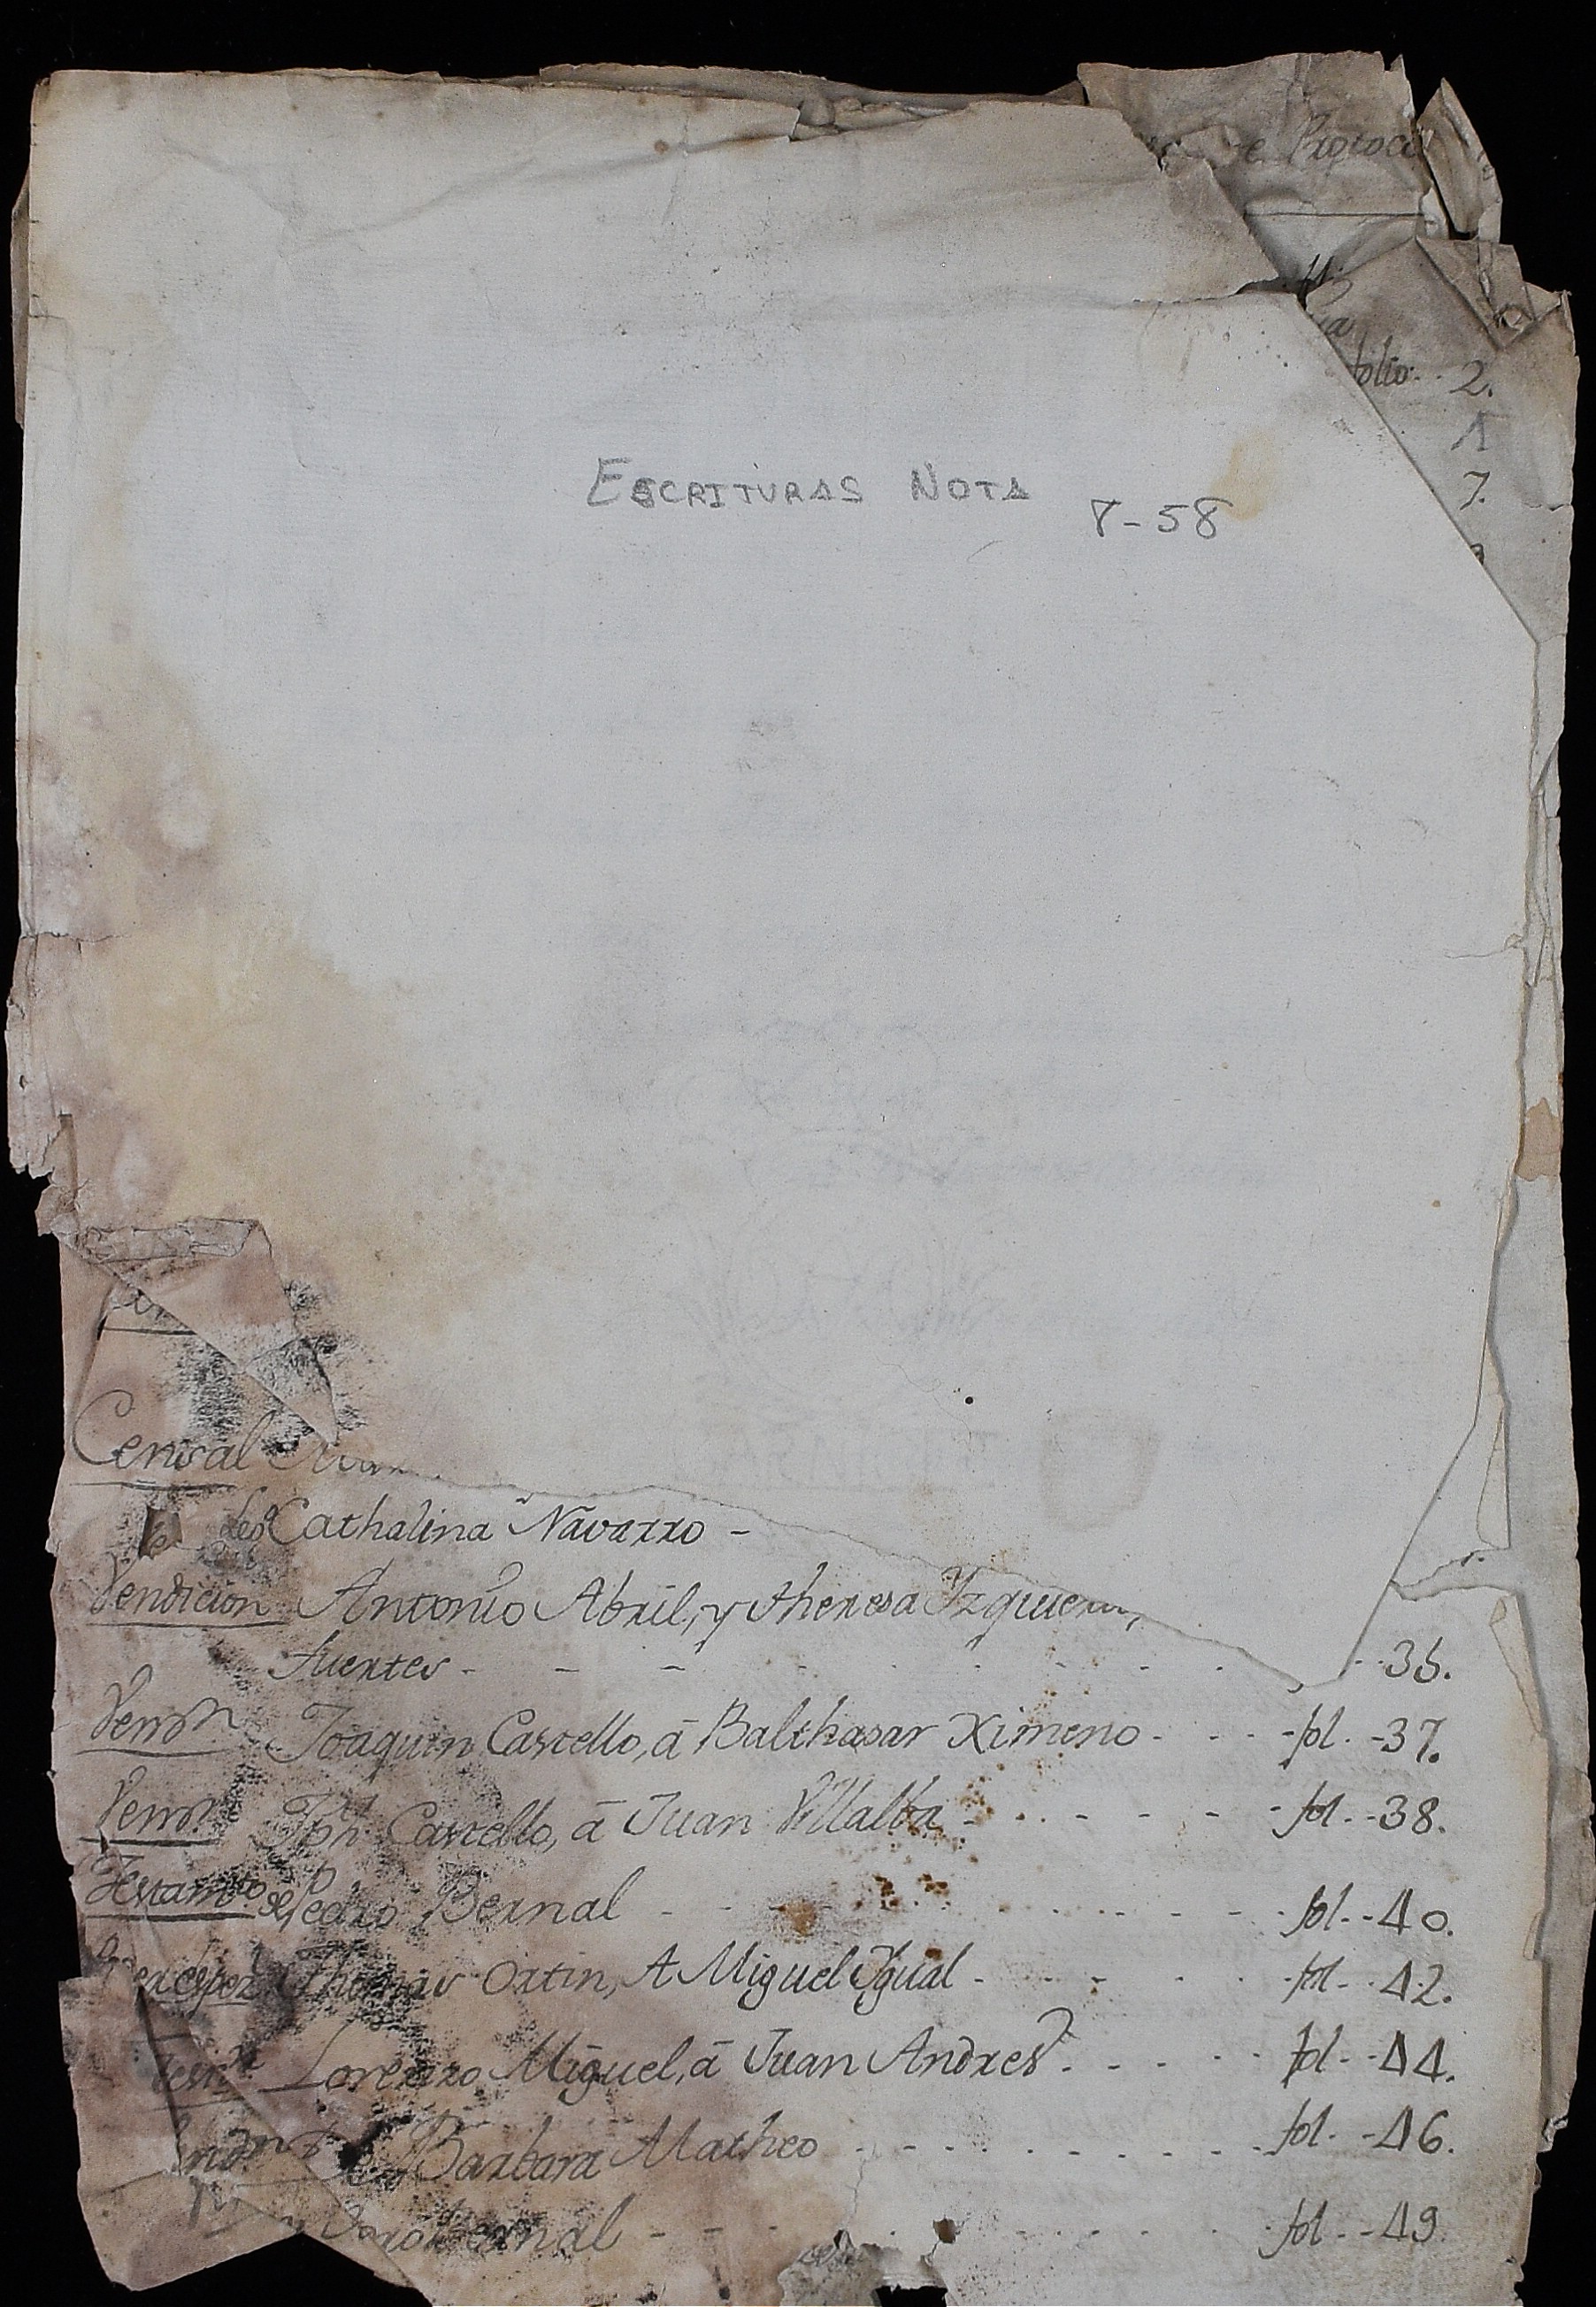 folio 2.
7.
ESCRITURAS NOTA
8-58
Censal
Cathalina Navarro -
Vendicion Antonio Abril, y theresa
fuertes - - - - - - - 35.
Vendn Joaquin Castello, á Balthasar Ximeno - - - fol. - 37.
Vendn Jph Castello, á Juan Villalba - - - - fol. - 38.
Testamto de Pedro Bernal - - - - - - - fol. - 40.
Thomas Ortin, A Miguel Ygual - - - - fol. - 42.
Lorenzo Miguel, á Juan Andres - - - - fol. - 44.
Barbara Matheo - - - - - - fol. - 46.
Bernal - - - - - - - fol. - 49